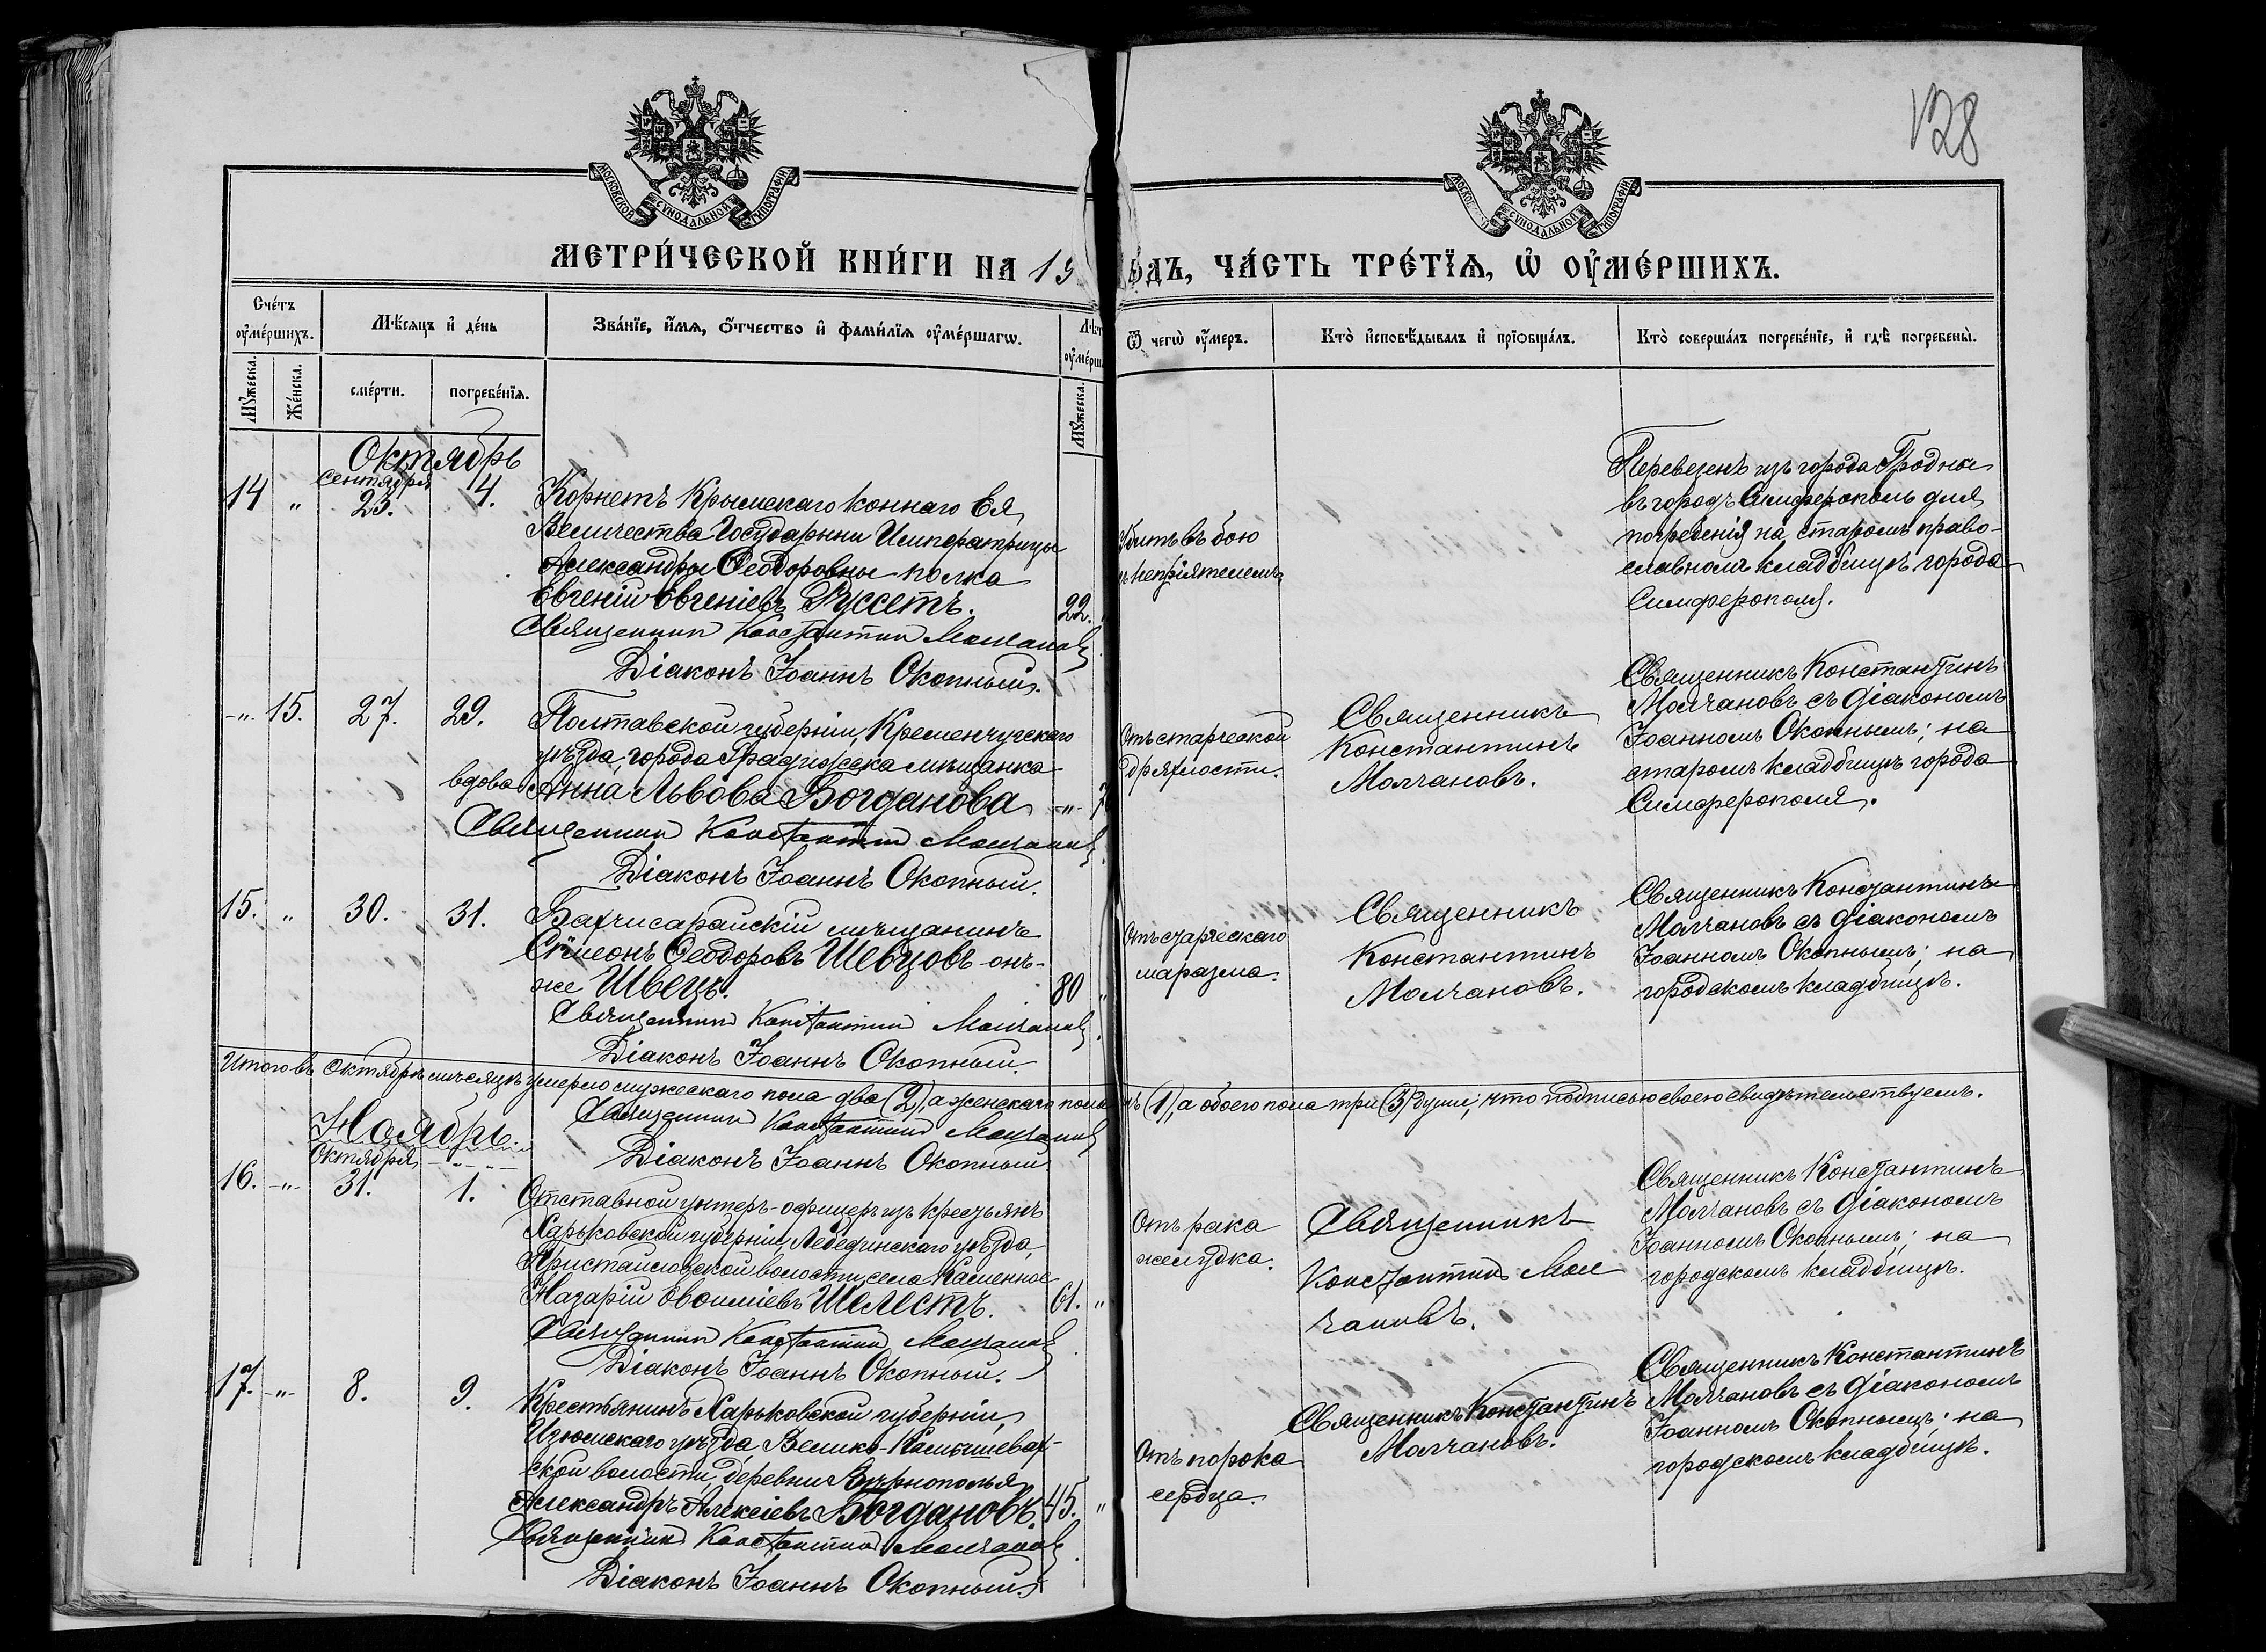 128
МОСКОВСКОЙ СѴНОДАЛЬНОЙ ТИПОГРАФІИ
МОСКОВСКОЙ СѴНОДАЛЬНОЙ ТИПОГРАФІИ
МЕТРИ́ЧЕСКОЙ КНИ́ГИ НА 19
ѻ́ДЪ, ЧА́СТЬ ТРЕ́ТЇѦ, Ѡ҆ ОУ҆МЕ́РШИХЪ.
Сче́тъ оу҆ме́ршихъ.
Мꙋ́жеска.
Же́нска.
Мѣ́сяцъ и҆ де́нь
сме́рти.
погребе́нїя.
Зва́нїе, и҆́мя, ѻ҆́тчество и҆ фами́лїя оу҆ме́ршагѡ.
Мꙋ́жеска.
Ѿ чегѡ̀ оу҆́меръ.
Кто̀ и҆сповѣ́дывалъ и҆ прїѻбща́лъ.
Кто̀ соверша́лъ погребе́нїе, и҆ гдѣ̀ погребены̀.
Октябрь
14 " Сентября 23. 4.
Корнетъ Крымскаго коннаго Ея
Величества Государыни Императрицы
Александры Ѳеодоровны полка
Евгеній Евгеніевъ Руссетъ. 22.
Священник Константин Молчановъ
Діаконъ Іоаннъ Окопный.
Убитъ въ бою
съ непріятелемъ
Перевезенъ изъ города Гродно
въ городъ Симферополь для
погребенія на старомъ право-
славномъ кладбищѣ города
Симферополя.
-"- 15. 27. 29.
Полтавской губерніи, Кременчугскаго
уѣзда, города Градижска мѣщанка
вдова Анна Львова Богданова -"- 7
Священник Константин Молчановъ
Діаконъ Іоаннъ Окопный.
Отъ старческой
дряхлости.
Священникъ
Константинъ
Молчановъ.
Священникъ Константинъ
Молчановъ съ діакономъ
Іоанномъ Окопнымъ; на
старомъ кладбищѣ города
Симферополя.
15. " 30. 31.
Бахчисарайскій мѣщанинъ
Сѵмеонъ Ѳеодоровъ Шевцовъ онъ-
же Швецъ. 80 "
Священник Константин Молчановъ
Діаконъ Іоаннъ Окопный.
Отъ старческаго
маразма.
Священникъ
Константинъ
Молчановъ.
Священникъ Константинъ
Молчановъ съ діакономъ
Іоанномъ Окопнымъ; на
городскомъ кладбищѣ.
Итого въ Октябрѣ мѣсяцѣ умерло мужескаго пола два (2), а женскаго пола
(1), а обоего пола три (3) души; что подписью своею свидѣтельствуемъ.
Священник Константин Молчановъ
Діаконъ Іоаннъ Окопный
Ноябрь.
16. -"- Октября 31. 1.
Отставной унтеръ-офицеръ изъ крестьянъ
Харьковской губерніи, Лебединскаго уѣзда,
Пристайловской волости, села Каменное
Назарій Евѳиміевъ Шелестъ. 61. "
Священник Константин Молчановъ
Діаконъ Іоаннъ Окопный.
Отъ рака
желудка.
Священникъ
Константинъ Мол
чановъ.
Священникъ Константинъ
Молчановъ съ діакономъ
Іоанномъ Окопнымъ; на
городскомъ кладбищѣ.
17. -"- 8. 9.
Крестьянинъ Харьковской губерніи,
Изюмскаго уѣзда, Велико-Камышевах-
ской волости, деревни Вѣрнополья
Александръ Алексіевъ Богдановъ. 45. "
Священник Константин Молчановъ
Діаконъ Іоаннъ Окопный.
Отъ порока
сердца.
Священникъ Константинъ
Молчановъ.
Священникъ Константинъ
Молчановъ съ діакономъ
Іоанномъ Окопнымъ; на
городскомъ кладбищѣ.